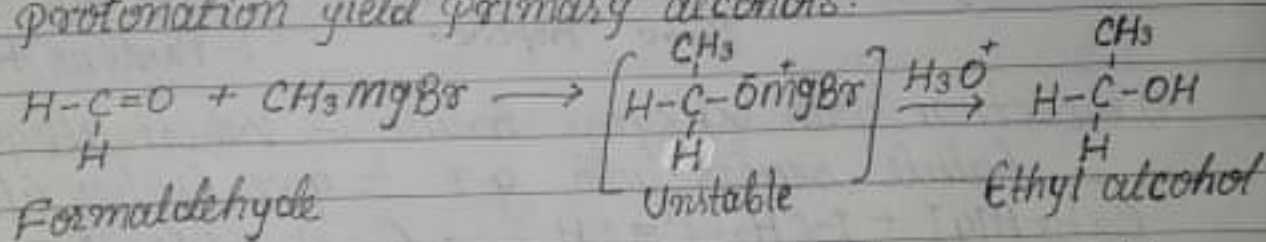 protonation yield primary alcohols.
CH3 CH3
H-C=O + CH3MgBr ⟶ [H-C-ŌM⁺gBr] H3O⁺⟶ H-C-OH
H H H
Formaldehyde Unstable Ethyl alcohol